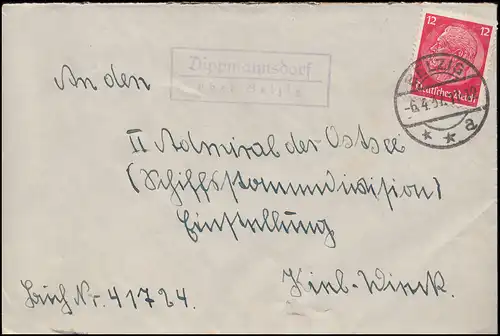 Dippmannsdorf
über Belzig
12 12
Deutsches Reich
BELZIG
-6.4.37.
* * a
An den
II Admiral der Ostsee
(Schiffsstammdivision)
Einstellung
Kiel-Wieck.
Buch Nr. 41724.